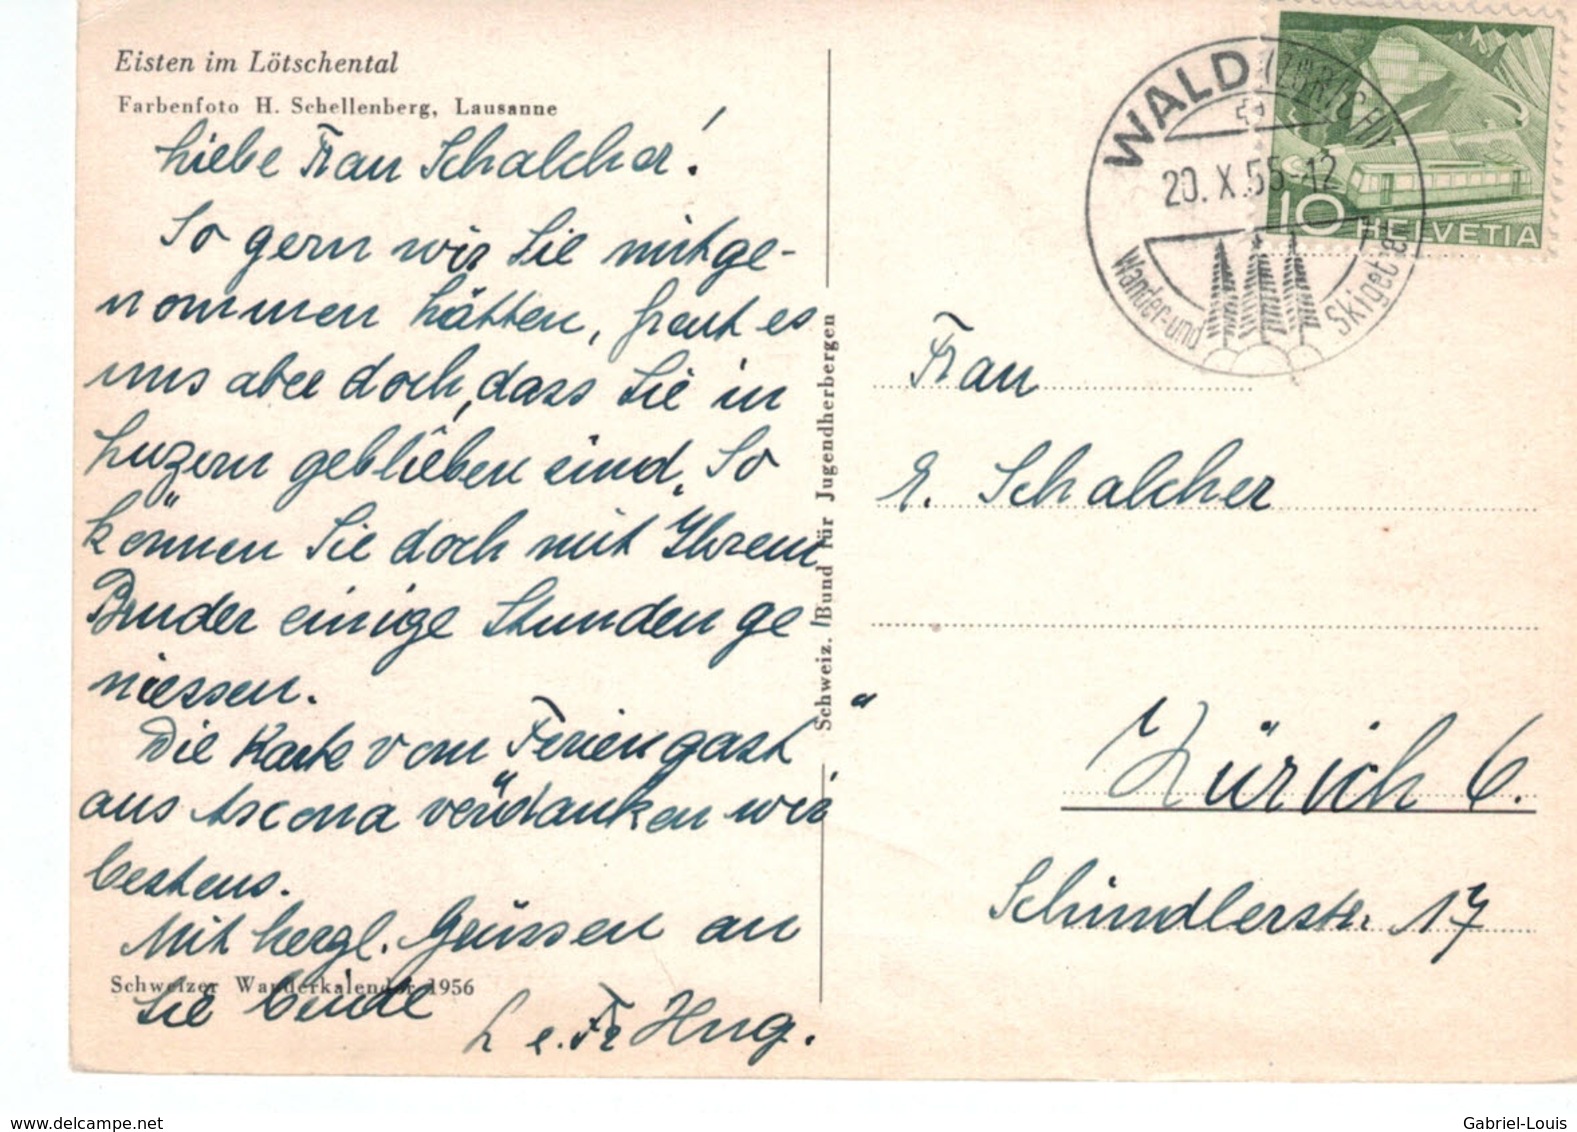 Eisten im Lötschental
Farbenfoto H. Schellenberg, Lausanne
Liebe Frau Schalcher!
So gern wir Sie mitge-
nommen hätten, freut es
uns aber doch, dass Sie in
Luzern geblieben sind. So
können Sie doch mit Ihrem
Bruder einige Stunden ge
niessen.
Die Karte vom Feriengast
aus Ascona verdanken wir
bestens.
Mit herzl. Grüssen an
Sie beide
Fr Hug.
Schweizer Wanderkalender 1956
Schweiz. Bund für Jugendherbergen
WALD (ZÜRICH)
20. X. 55-12
Wander- und Skigebiet
10 HELVETIA
Frau
E. Schalcher
Zürich 6.
Schindlerstr. 17
www.delcampe.net
Gabriel-Louis